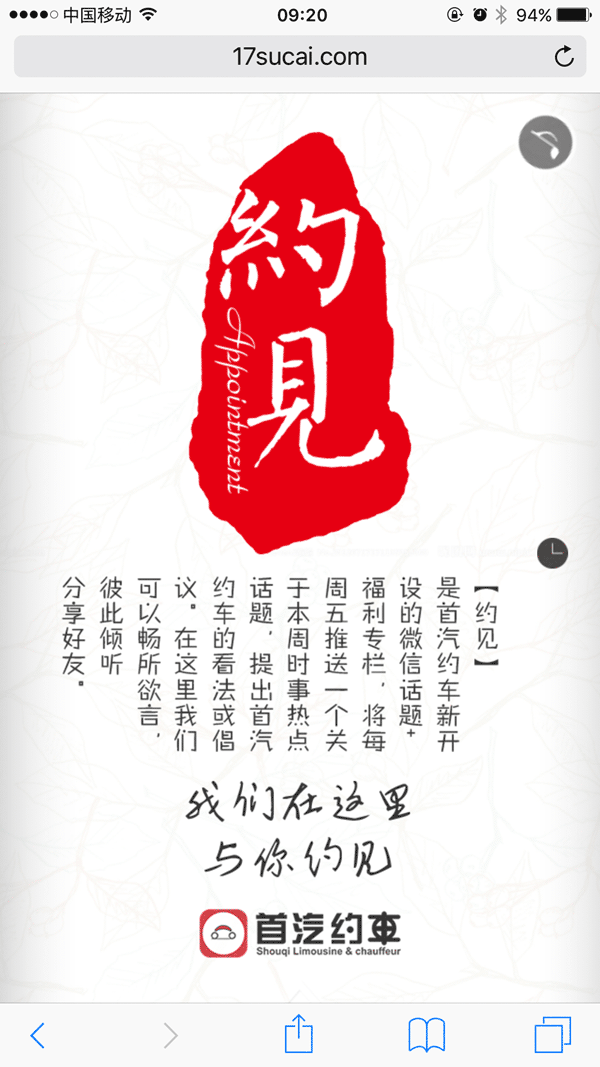 中国移动
09:20
94%
17sucai.com
約見
Appointment
【约见】
是首汽约车新开
设的微信话题+
福利专栏，将每
周五推送一个关
于本周时事热点
话题，提出首汽
约车的看法或倡
议。在这里我们
可以畅所欲言，
彼此倾听
分享好友。
我们在这里
与你约见
首汽约車
Shouqi Limousine & chauffeur